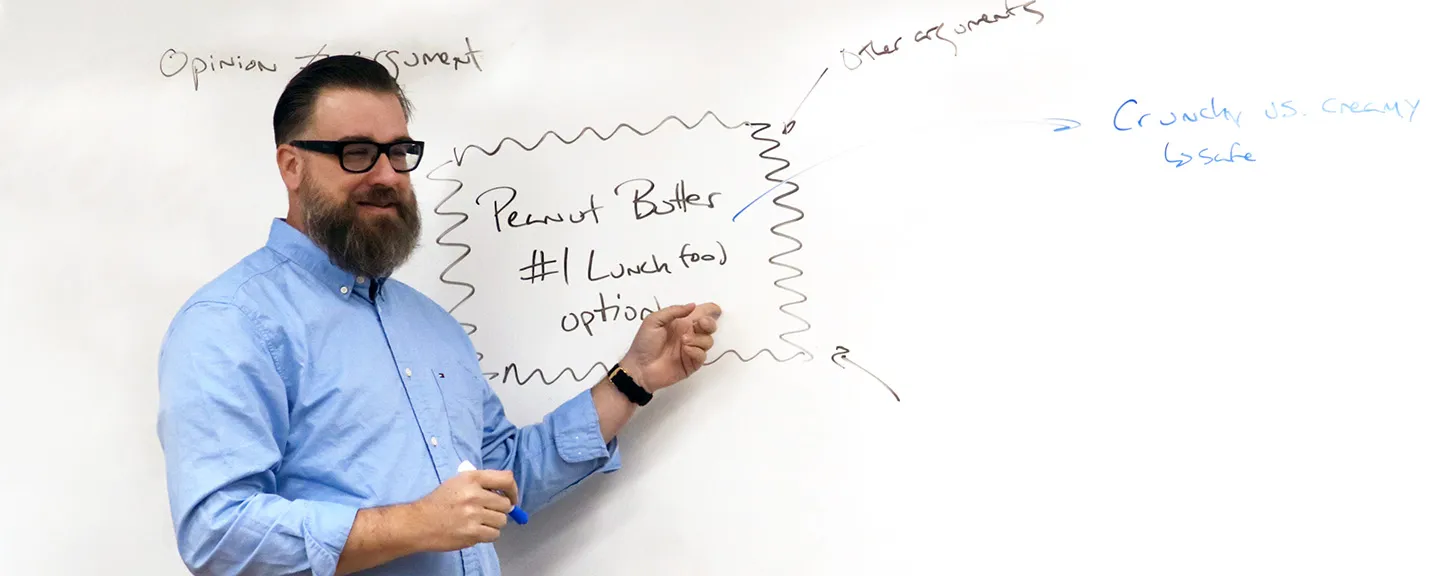 Opinion ≠ argument
Other arguments
Crunchy vs. creamy
↳ safe
Peanut Butter
#1 Lunch food
option